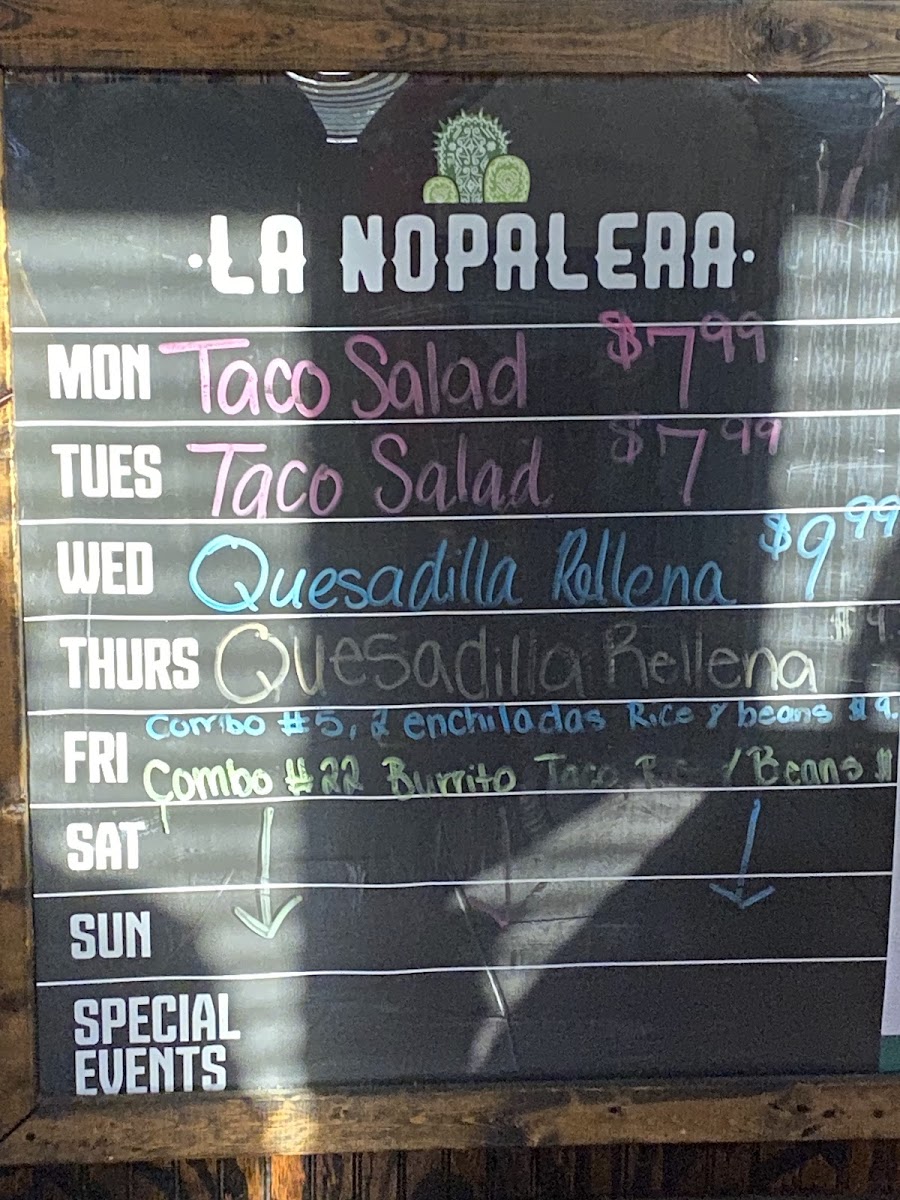 ·LA NOPALERA·
MON Taco Salad $7.99
TUES Taco Salad $7.99
WED Quesadilla Rellena $9.99
THURS Quesadilla Rellena $9.
FRI Combo #5, 2 enchiladas Rice & beans $9.
Combo #22 Burrito Taco / Beans $
SAT
SUN
SPECIAL
EVENTS